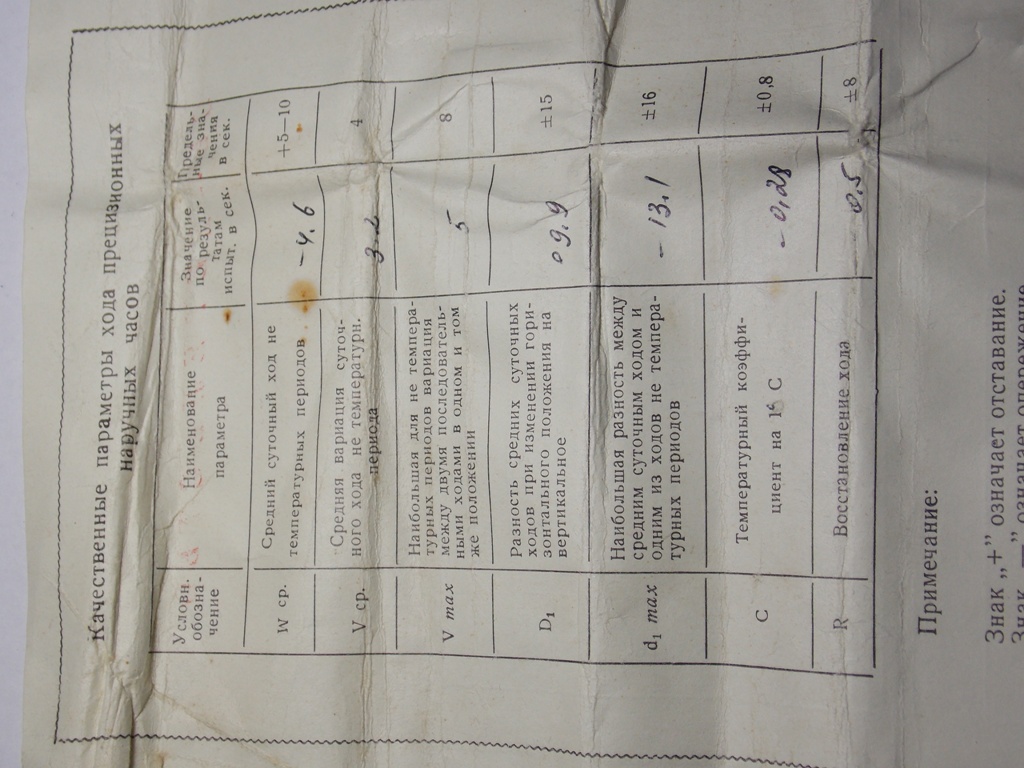 Качественные параметры хода прецизионных
наручных часов
Условн.
обозна-
чение
Наименование
параметра
Значение
по резуль-
татам
испыт. в сек.
Предель-
ные зна-
чения
в сек.
W ср.
Средний суточный ход не
температурных периодов
-4.6
+5—10
V ср.
Средняя вариация суточ-
ного хода не температурн.
периода
3.2
4
V max
Наибольшая для не темпера-
турных периодов вариация
между двумя последователь-
ными ходами в одном и том
же положении
5
8
D₁
Разность средних суточных
ходов при изменении гори-
зонтального положения на
вертикальное
09.9
±15
d₁ max
Наибольшая разность между
средним суточным ходом и
одним из ходов не темпера-
турных периодов
-13.1
±16
C
Температурный коэффи-
циент на 1° С
-0,28
±0,8
R
Восстановление хода
0.5
±8
Примечание:
Знак „+” означает отставание.
Знак „—” означает опережение